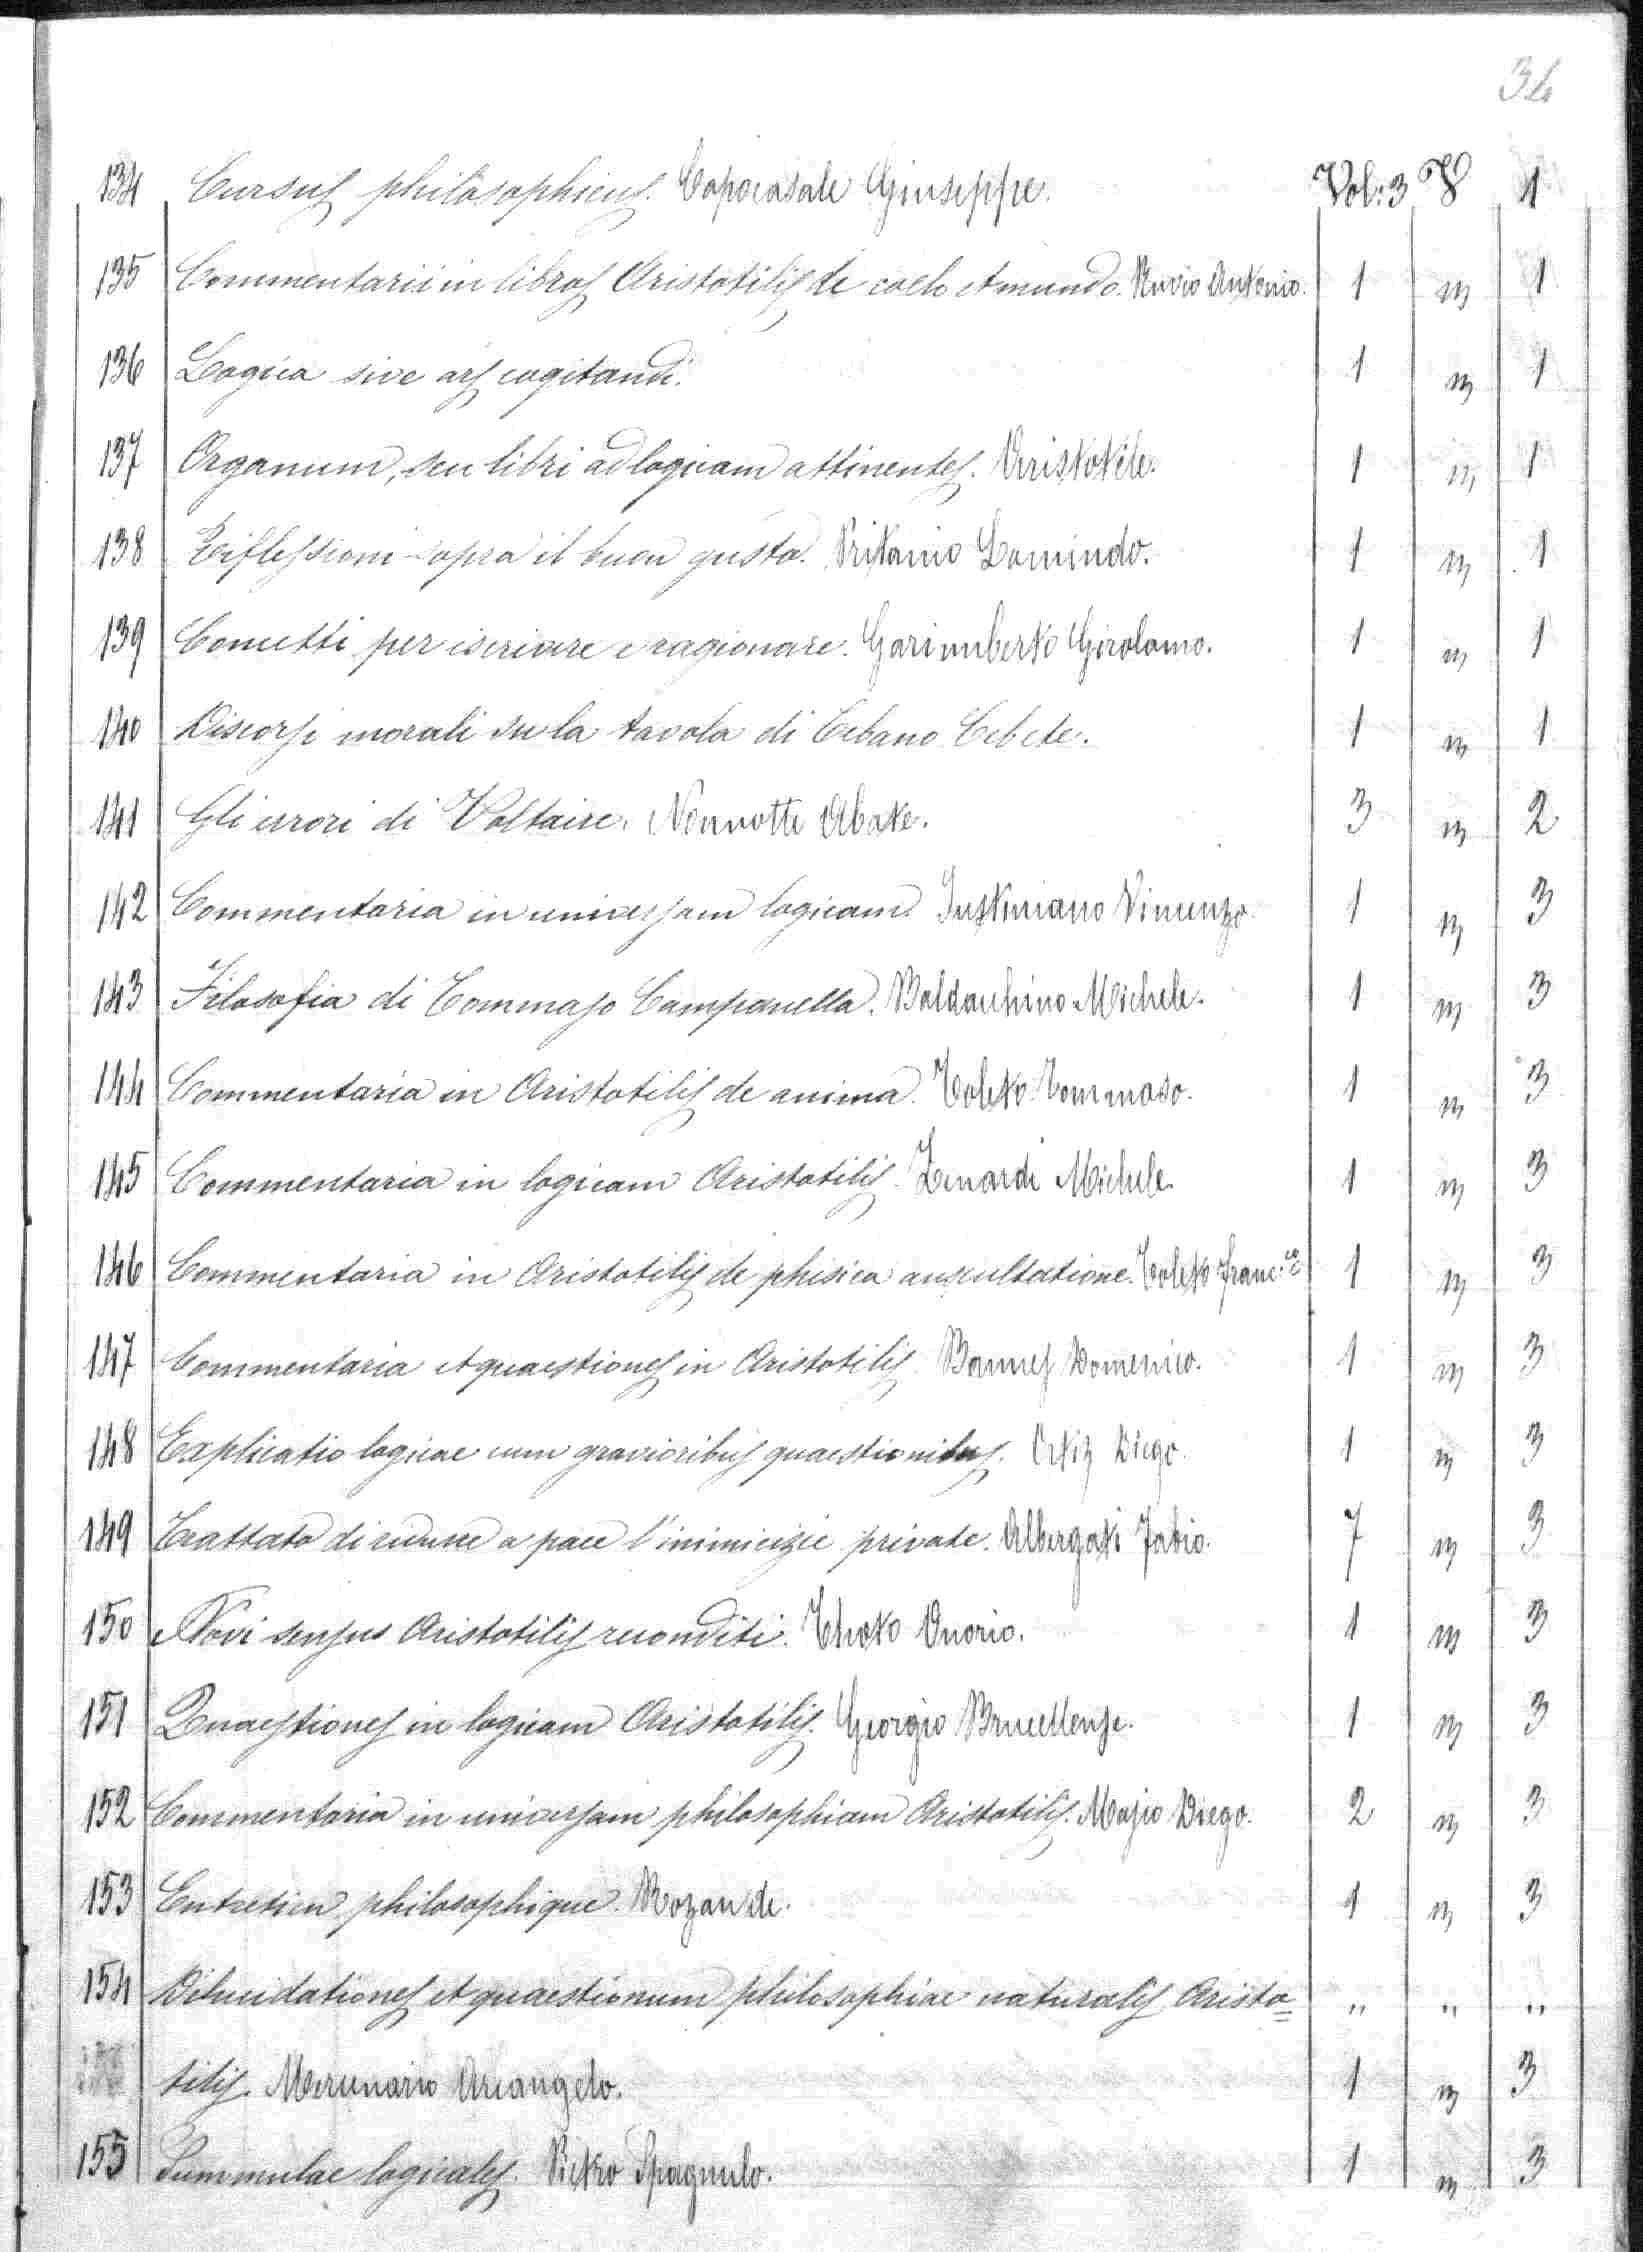 34
134 Cursus philosophicus. Capocasale Giuseppe. Vol: 3 V 1
135 Commentarii in libros Aristotilis de coelo et mundo. Ruvio Antonio. 1 m 1
136 Logica sive ars cogitandi. 1 m 1
137 Organum, seu libri ad logicam attinentes. Aristotile. 1 m 1
138 Riflessioni sopra il buon gusto. Pritanio Lamindo. 1 m 1
139 Concetti per iscrivere e ragionare. Garimberto Girolamo. 1 m 1
140 Discorsi morali su la tavola di Cebano Cebete. 1 m 1
141 Gli errori di Voltaire. Nonnotte Abate. 3 m 2
142 Commentaria in universam logicam. Justiniano Vincenzo. 1 m 3
143 Filosofia di Tommaso Campanella. Baldacchino Michele. 1 m 3
144 Commentaria in Aristotilis de anima. Toleto Tommaso. 1 m 3
145 Commentaria in logicam Aristotilis. Zenardi Michele. 1 m 3
146 Commentaria in Aristotilis de phisica auscultatione. Toleto Franc.co 1 m 3
147 Commentaria et quaestiones in Aristotilis. Bannes Domenico. 1 m 3
148 Explicatio logicae cum gravioribus quaestionibus. Ortiz Diego. 1 m 3
149 Trattato di ridurre a pace l'inimicizie private. Albergati Fabio. 7 m 3
150 Novi sensus Aristotilis reconditi. Thoto Onorio. 1 m 3
151 Quaestiones in logicam Aristotilis. Georgio Brucellense. 1 m 3
152 Commentaria in universam philosophiam Aristotilis. Masio Diego. 2 m 3
153 Entretien philosophique. Rozande. 1 m 3
154 Dilucidationes et quaestionum philosophiae naturalis Aristo= " " "
tilis. Mercenario Arcangelo. 1 m 3
155 Summulae logicales. Pietro Spagnulo. 1 m 3